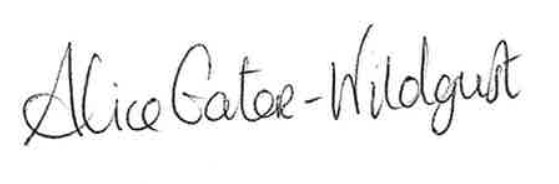 Alice Gater-Wildgust